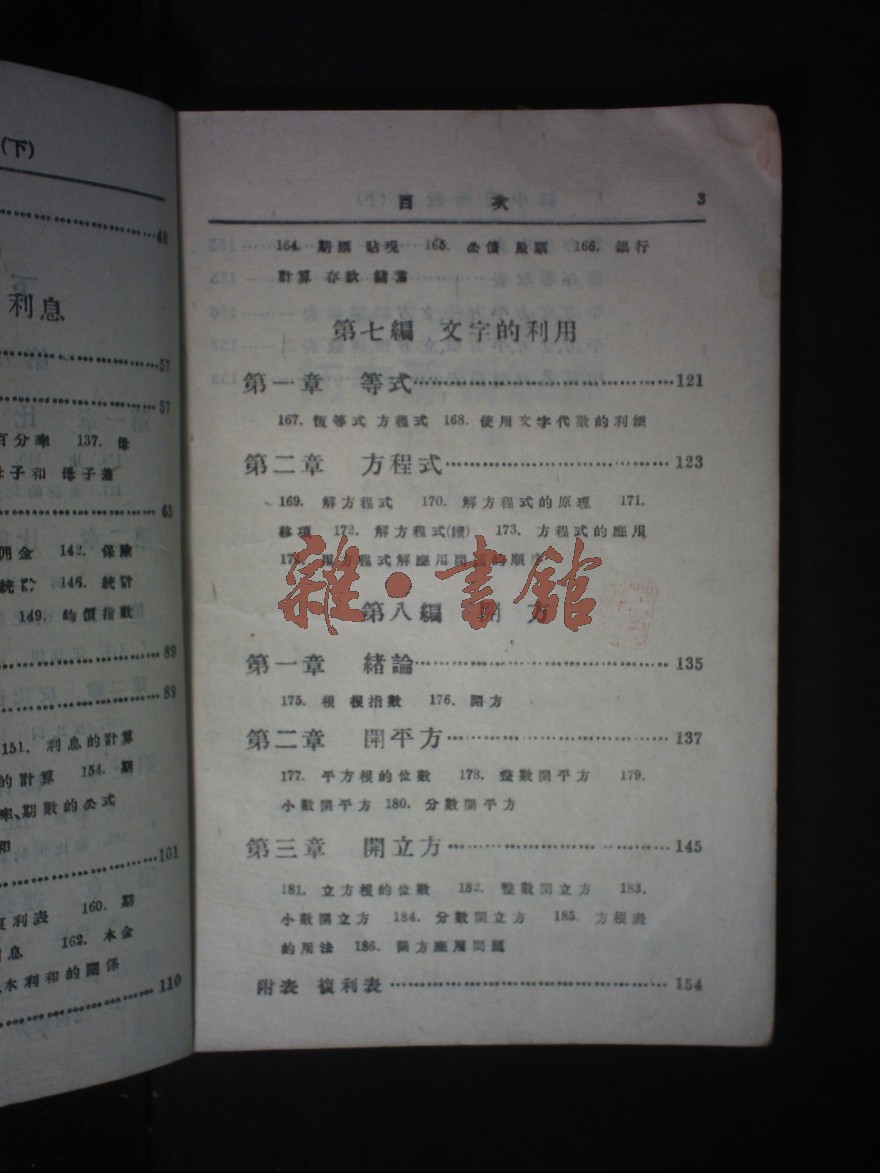 (下)
48
利息
57
57
百分率 137. 母
母子和 母子差
65
佣金 142. 保險
統計 146. 統計
149. 物價指數
89
89
151. 利息的計算
的計算 154. 期
率、期數的公式
和
101
複利表 160. 期
利息 162. 本金
本利和的關係
110
目 次 3
164. 期票 貼現 165. 公債 股票 166. 銀行
計算 存款 儲蓄
第七編 文字的利用
第一章 等式 121
167. 恆等式 方程式 168. 使用文字代數的利便
第二章 方程式 123
169. 解方程式 170. 解方程式的原理 171.
移項 172. 解方程式(續) 173. 方程式的應用
174. 用方程式解應用問題的順序
雜·書館
第八編 開方
第一章 緒論 135
175. 根 根指數 176. 開方
第二章 開平方 137
177. 平方根的位數 178. 整數開平方 179.
小數開平方 180. 分數開平方
第三章 開立方 145
181. 立方根的位數 182. 整數開立方 183.
小數開立方 184. 分數開立方 185. 方根表
的用法 186. 開方應用問題
附表 複利表 154